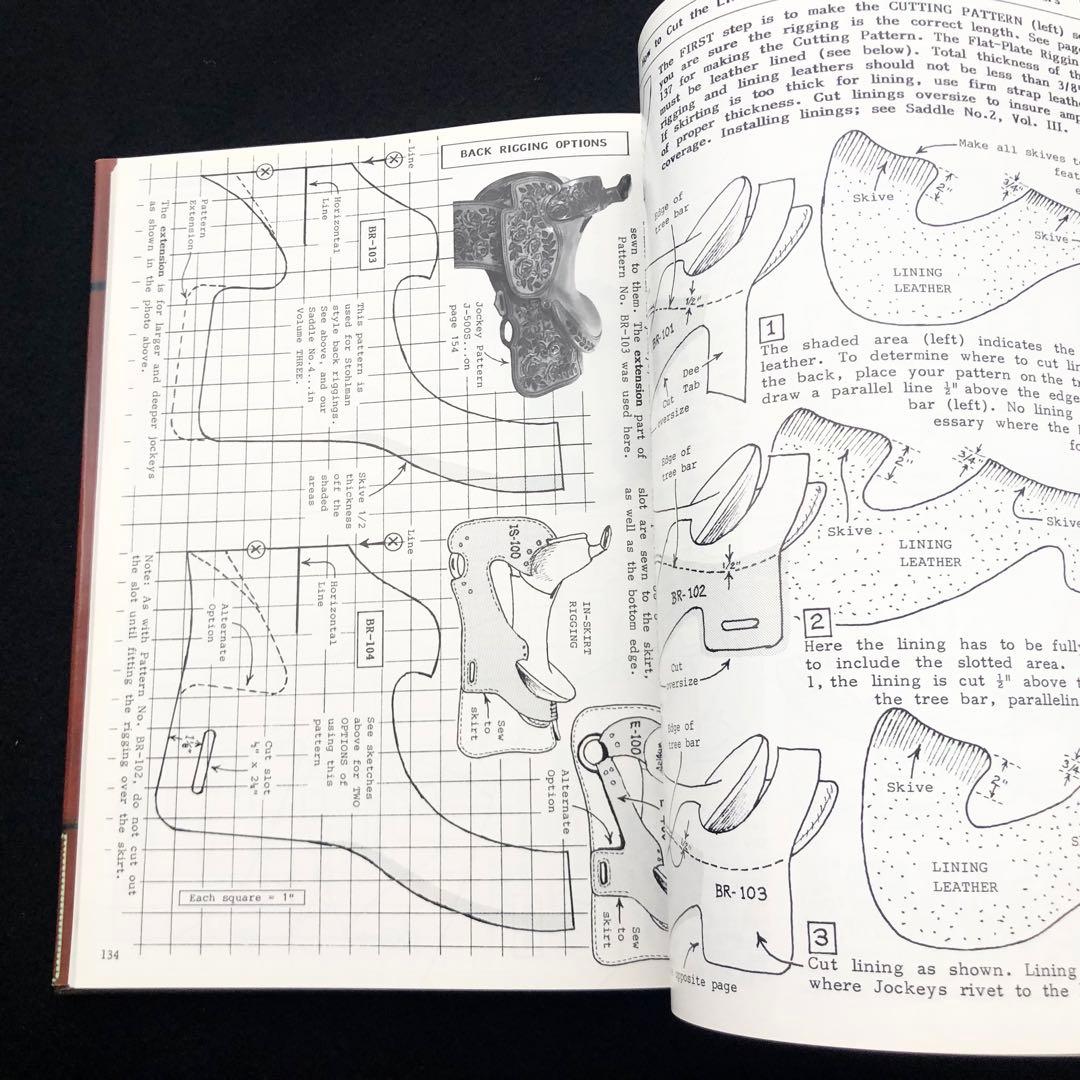 BACK RIGGING OPTIONS
Line
BR-103
Horizontal
Line
Pattern
Extension
The extension is for larger and deeper jockeys
as shown in the photo above.
This pattern is
used for Stohlman
style back riggings.
See above, and our
Saddle No.4...in
Volume THREE.
Jockey Pattern
J-500S...on
page 154
sewn to them. The extension part of
Pattern No. BR-103 was used here.
Skive 1/2
thickness
off the
shaded
areas
slot are sewn to the skirt,
as well as the bottom edge.
Line
BR-104
Horizontal
Line
Alternate
Option
See sketches
above for TWO
OPTIONS of
using this
pattern
Cut slot
½" x 2¼"
Note: As with Pattern No. BR-102, do not cut out
the slot until fitting the rigging over the skirt.
IS-100
IN-SKIRT
RIGGING
Sew
to
skirt
E-100
Alternate
Option
Sew
to
skirt
Each square = 1"
134
to Cut the
The FIRST step is to make the CUTTING PATTERN (left)
you are sure the rigging is the correct length. See
137 for making the Cutting Pattern. The Flat-Plate
must be leather lined (see below). Total thickness of
rigging and lining leathers should not be less than 3/8"
If skirting is too thick for lining, use firm strap
of proper thickness. Cut linings oversize to insure
coverage. Installing linings; see Saddle No.2, Vol. III.
Edge of
tree bar
½"
BR-101
Dee
Tab
Cut
oversize
Make all skives
Skive
2"
3/4"
Skive
LINING
LEATHER
1
The shaded area (left) indicates the
leather. To determine where to cut
the back, place your pattern on the
draw a parallel line ½" above the edge
bar (left). No lining
essary where the
Edge of
tree bar
½"
BR-102
Cut
oversize
Skive
2"
3/4"
Skive
LINING
LEATHER
2
Here the lining has to be
to include the slotted area.
1, the lining is cut ½" above
the tree bar,
Edge of
tree bar
BR-103
opposite page
Skive
2"
LINING
LEATHER
3
Cut lining as shown. Lining
where Jockeys rivet to the